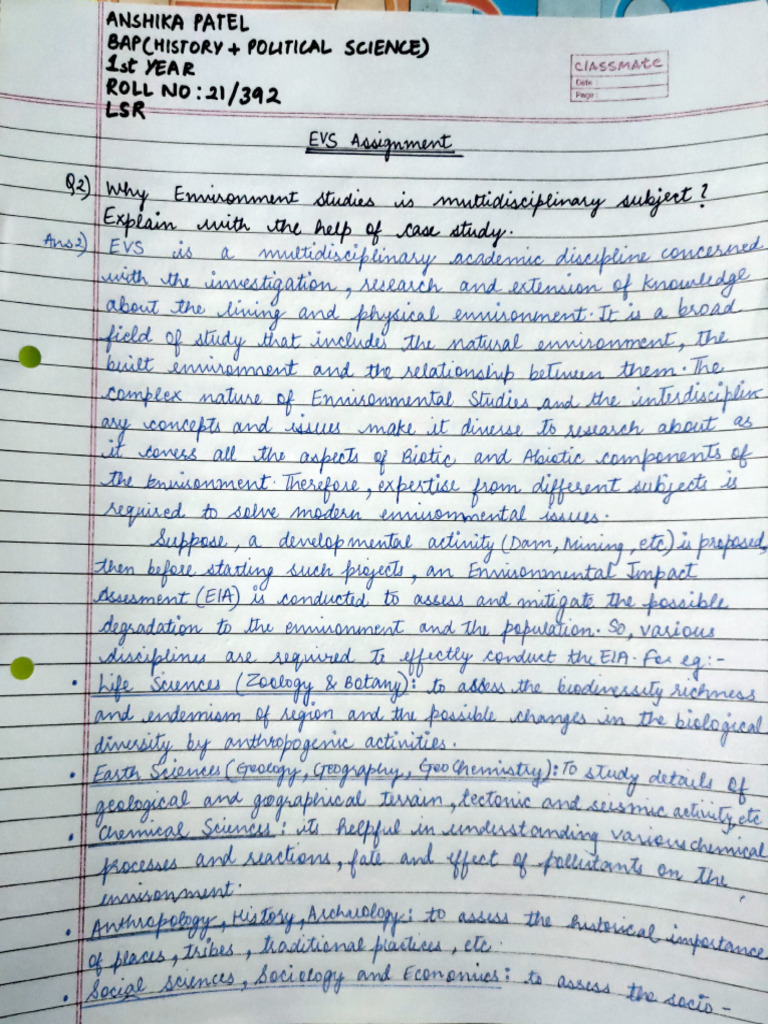 ANSHIKA PATEL
BAP(HISTORY + POLITICAL SCIENCE)
1st YEAR
ROLL NO : 21/392
LSR
CLASSMATE
Date
Page
EVS Assignment
Q2) Why Environment Studies is multidisciplinary subject?
Explain with the help of case study.
Ans2) EVS is a multidisciplinary academic discipline concerned
with the investigation, research and extension of knowledge
about the living and physical environment. It is a broad
field of study that includes the natural environment, the
built environment and the relationship between them. The
complex nature of Environmental Studies and the interdisciplin
ary concepts and issues make it diverse to research about as
it covers all the aspects of Biotic and Abiotic components of
the Environment. Therefore, expertise from different subjects is
required to solve modern environmental issues.
Suppose, a developmental activity (Dam, Mining, etc) is proposed,
then before starting such projects, an Environmental Impact
Assesment (EIA) is conducted to assess and mitigate the possible
degradation to the environment and the population. So, various
disciplines are required to effectly conduct the EIA. For eg:-
• Life Sciences (Zoology & Botany): to assess the biodiversity richness
and endemism of region and the possible changes in the biological
diversity by anthropogenic activities.
• Earth Sciences (Geology, Geography, GeoChemistry): To study details of
geological and geographical terrain, tectonic and seismic activity, etc
• Chemical Sciences: its helpful in understanding various chemical
processes and reactions, fate and effect of pollutants on the
environment.
• Anthropology, History, Archaeology: to assess the historical importance
of places, tribes, traditional practices, etc.
• Social sciences, Sociology and Economics: to assess the socio-